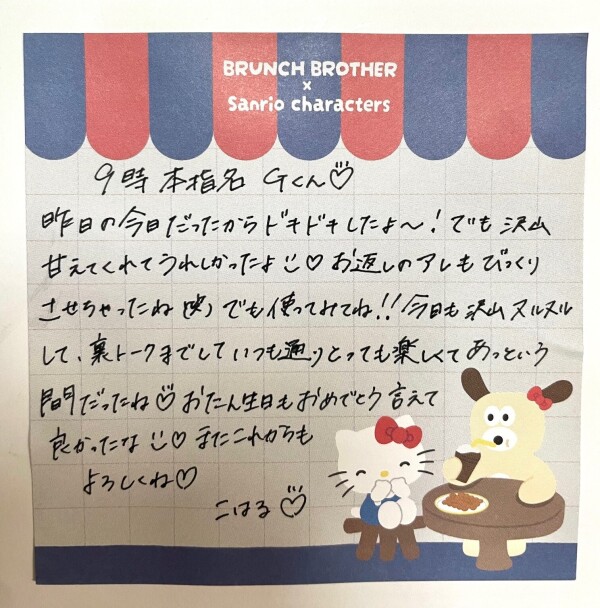 BRUNCH BROTHER
×
Sanrio characters
9時 本指名 Gくん♡
昨日の今日だったからドキドキしたよ〜！でも沢山
甘えてくれてうれしかったよ☺♡ お返しのアレもびっくり
させちゃったね(笑) でも使ってみてね!! 今日も沢山ヌルヌル
して、裏トークまでしていつも通りとっても楽しくてあっという
間だったね♡ おたん生日もおめでとう言えて
良かったな☺♡ またこれからも
よろしくね♡
こはる♡